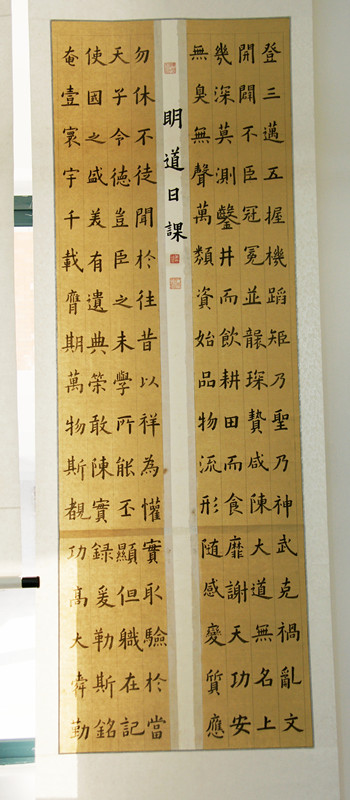 登三邁五握機蹈矩乃聖乃神武克禍亂文
開闢不臣冠冕並襲琛贄咸陳大道無名上
幾深莫測鑿井而飲耕田而食靡謝天功安
無臭無聲萬類資始品物流形随感變質應
明道日課
勿休不徒聞於往昔以祥為懼實取驗於當
天子令德豈臣之末學所能丕顯但職在記
使國之盛美有遺典策敢陳實錄爰勒斯銘
奄壹寰宇千載膺期萬物斯覩功髙大舜勤